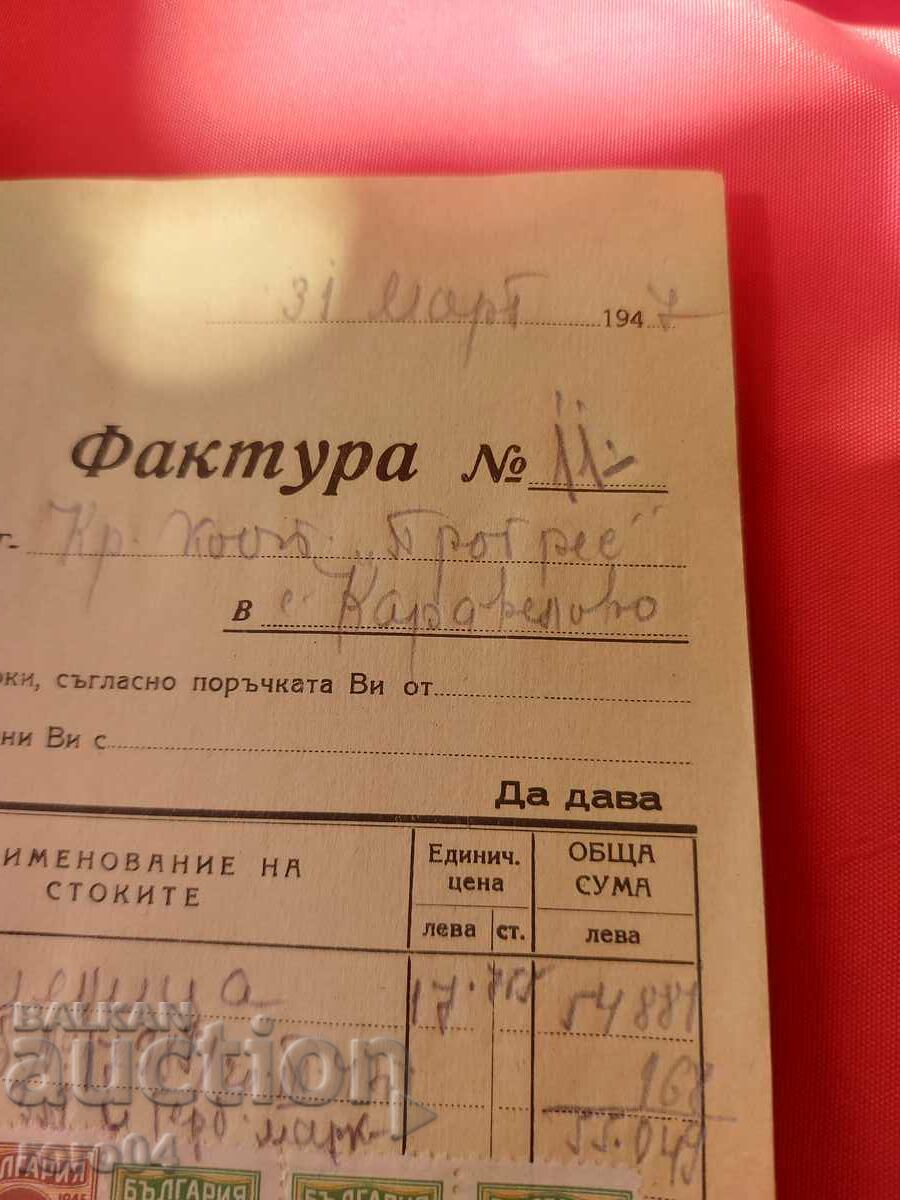 31 Март 1947
Фактура № 11
Кр. Кооп. „Прогрес“
В с. Каравелово
рки, съгласно поръчката Ви от
ни Ви с
Да дава
ИМЕНОВАНИЕ НА СТОКИТЕ
Единич. цена
ОБЩА СУМА
лева ст. лева
17 54 881
168
гербо. марк.
55.049
ЛГАРИЯ 1945 БЪЛГАРИЯ БЪЛГАРИЯ
BALKAN
auction
zoro04